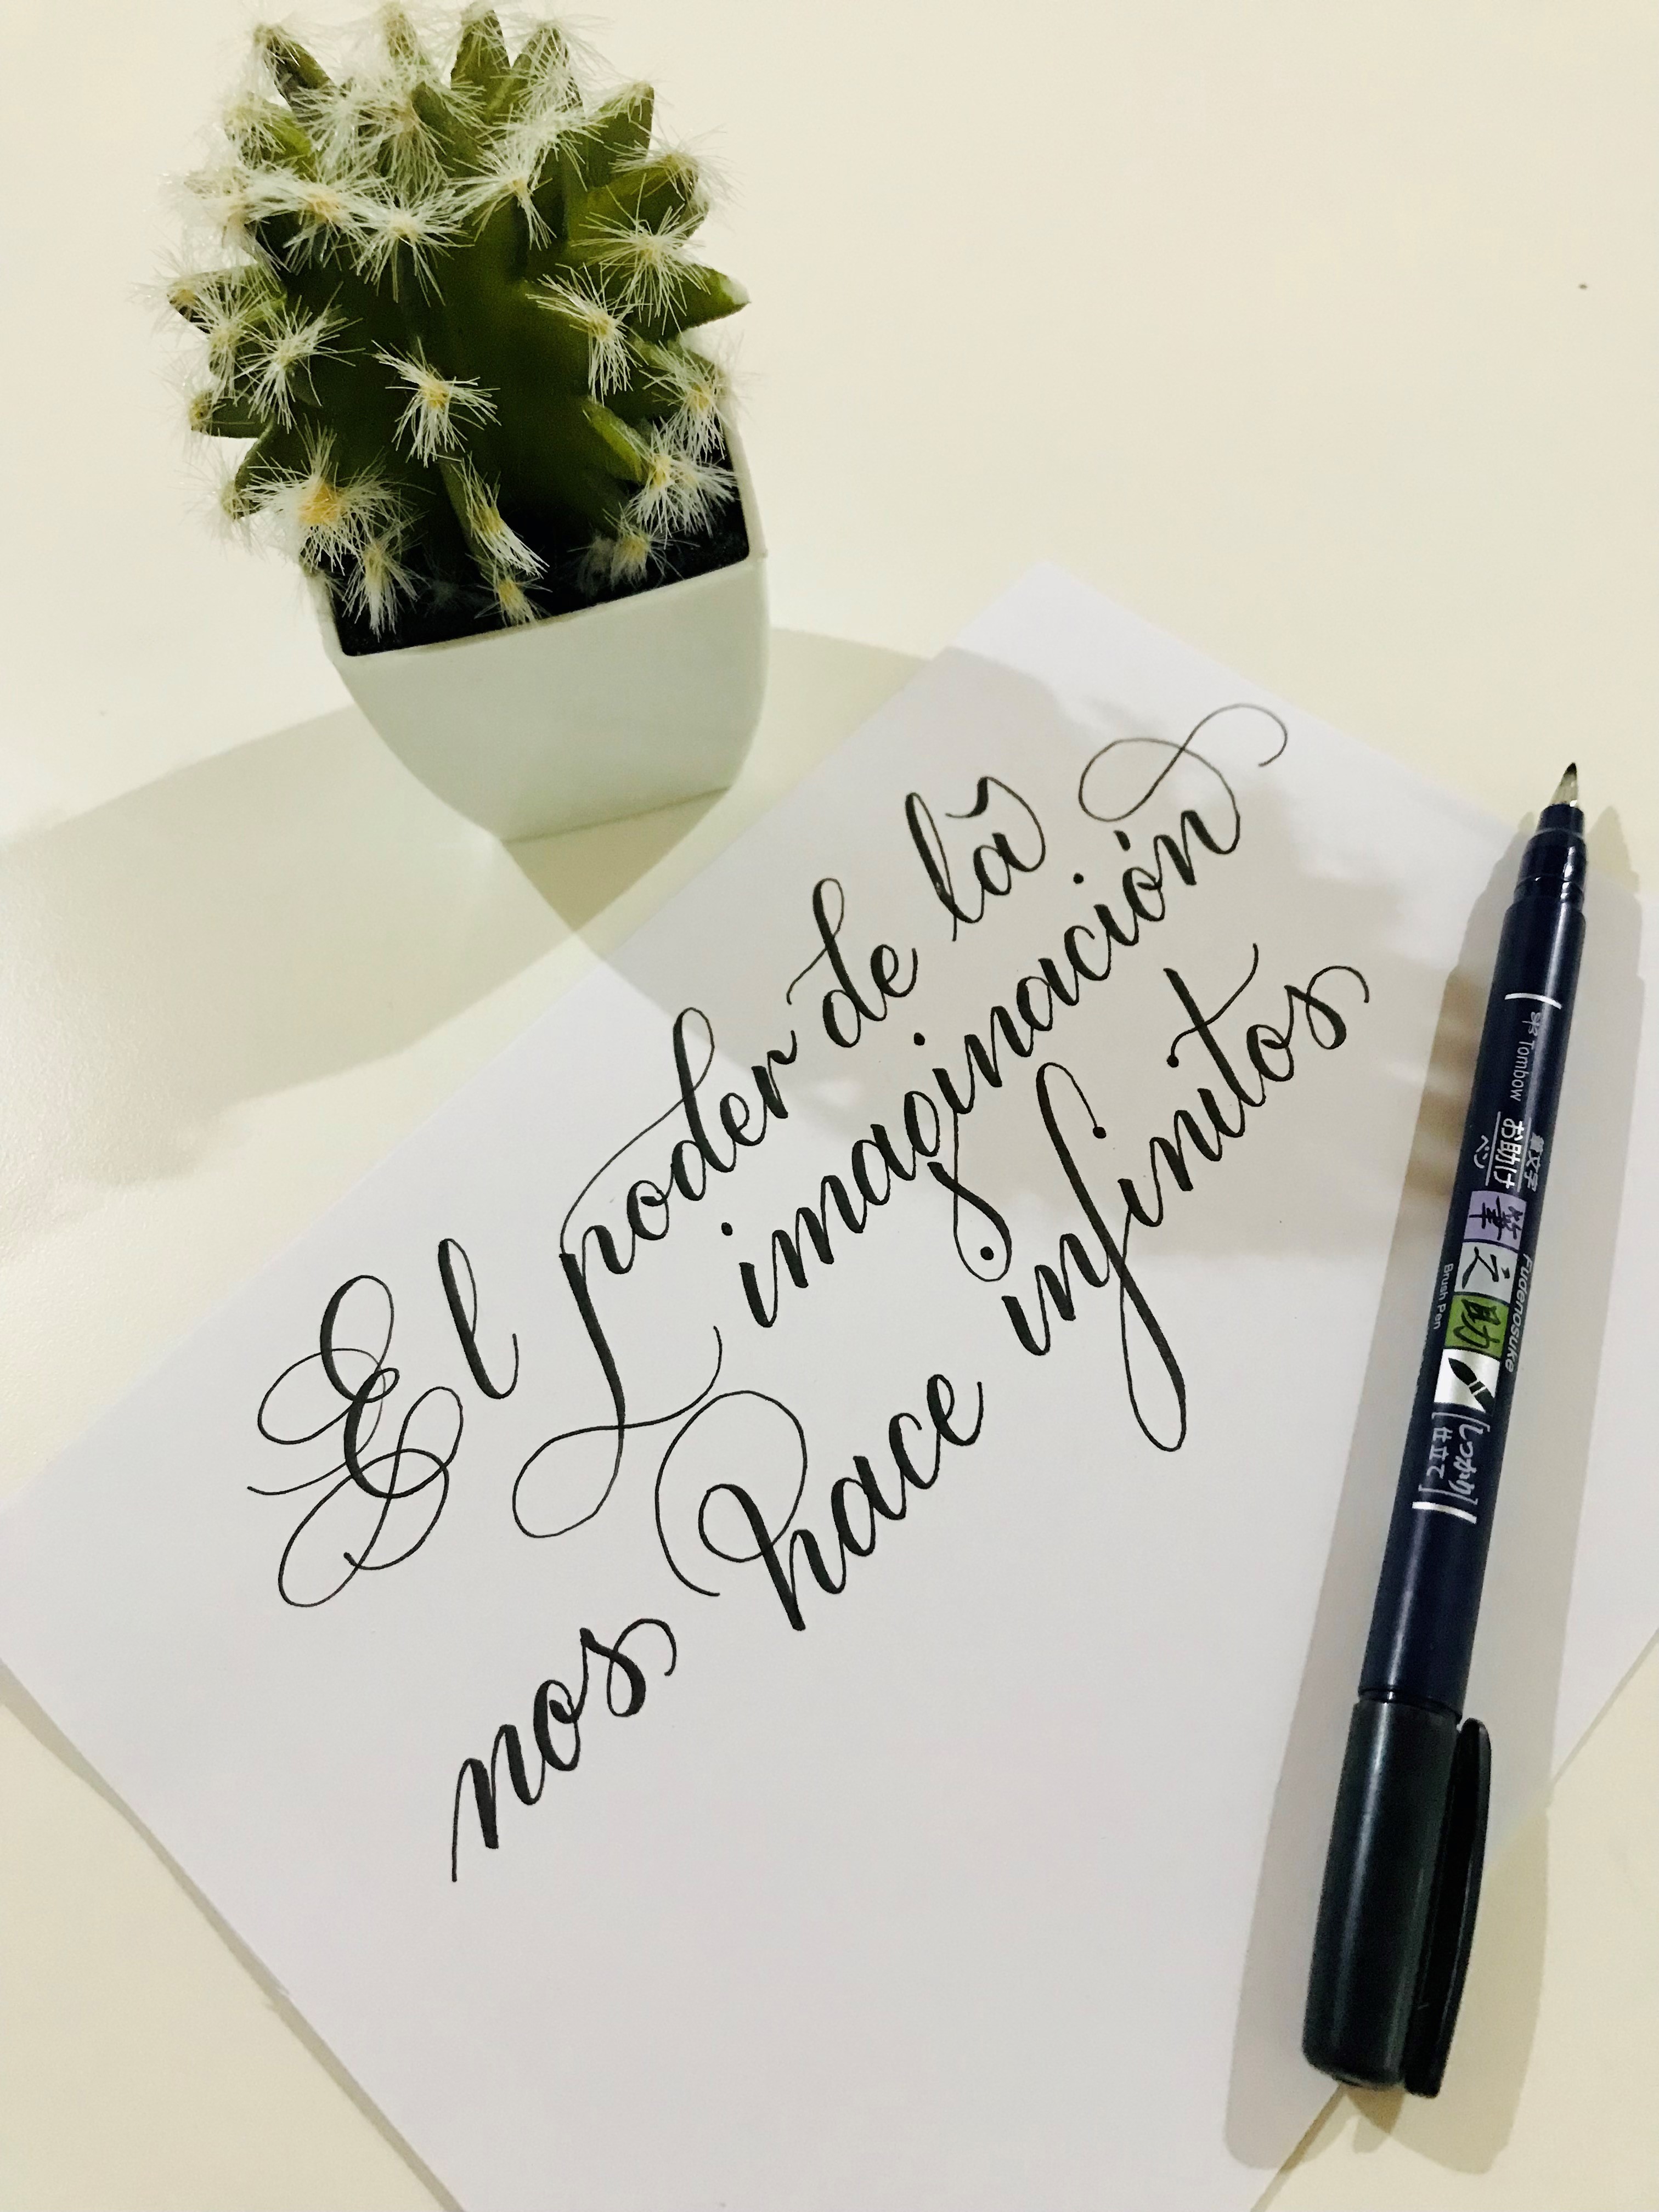 El poder de la
imaginación
nos hace infinitos
Tombow
筆文字
お助け
ペン
筆之助
Fudenosuke
Brush Pen
しっかり
仕立て